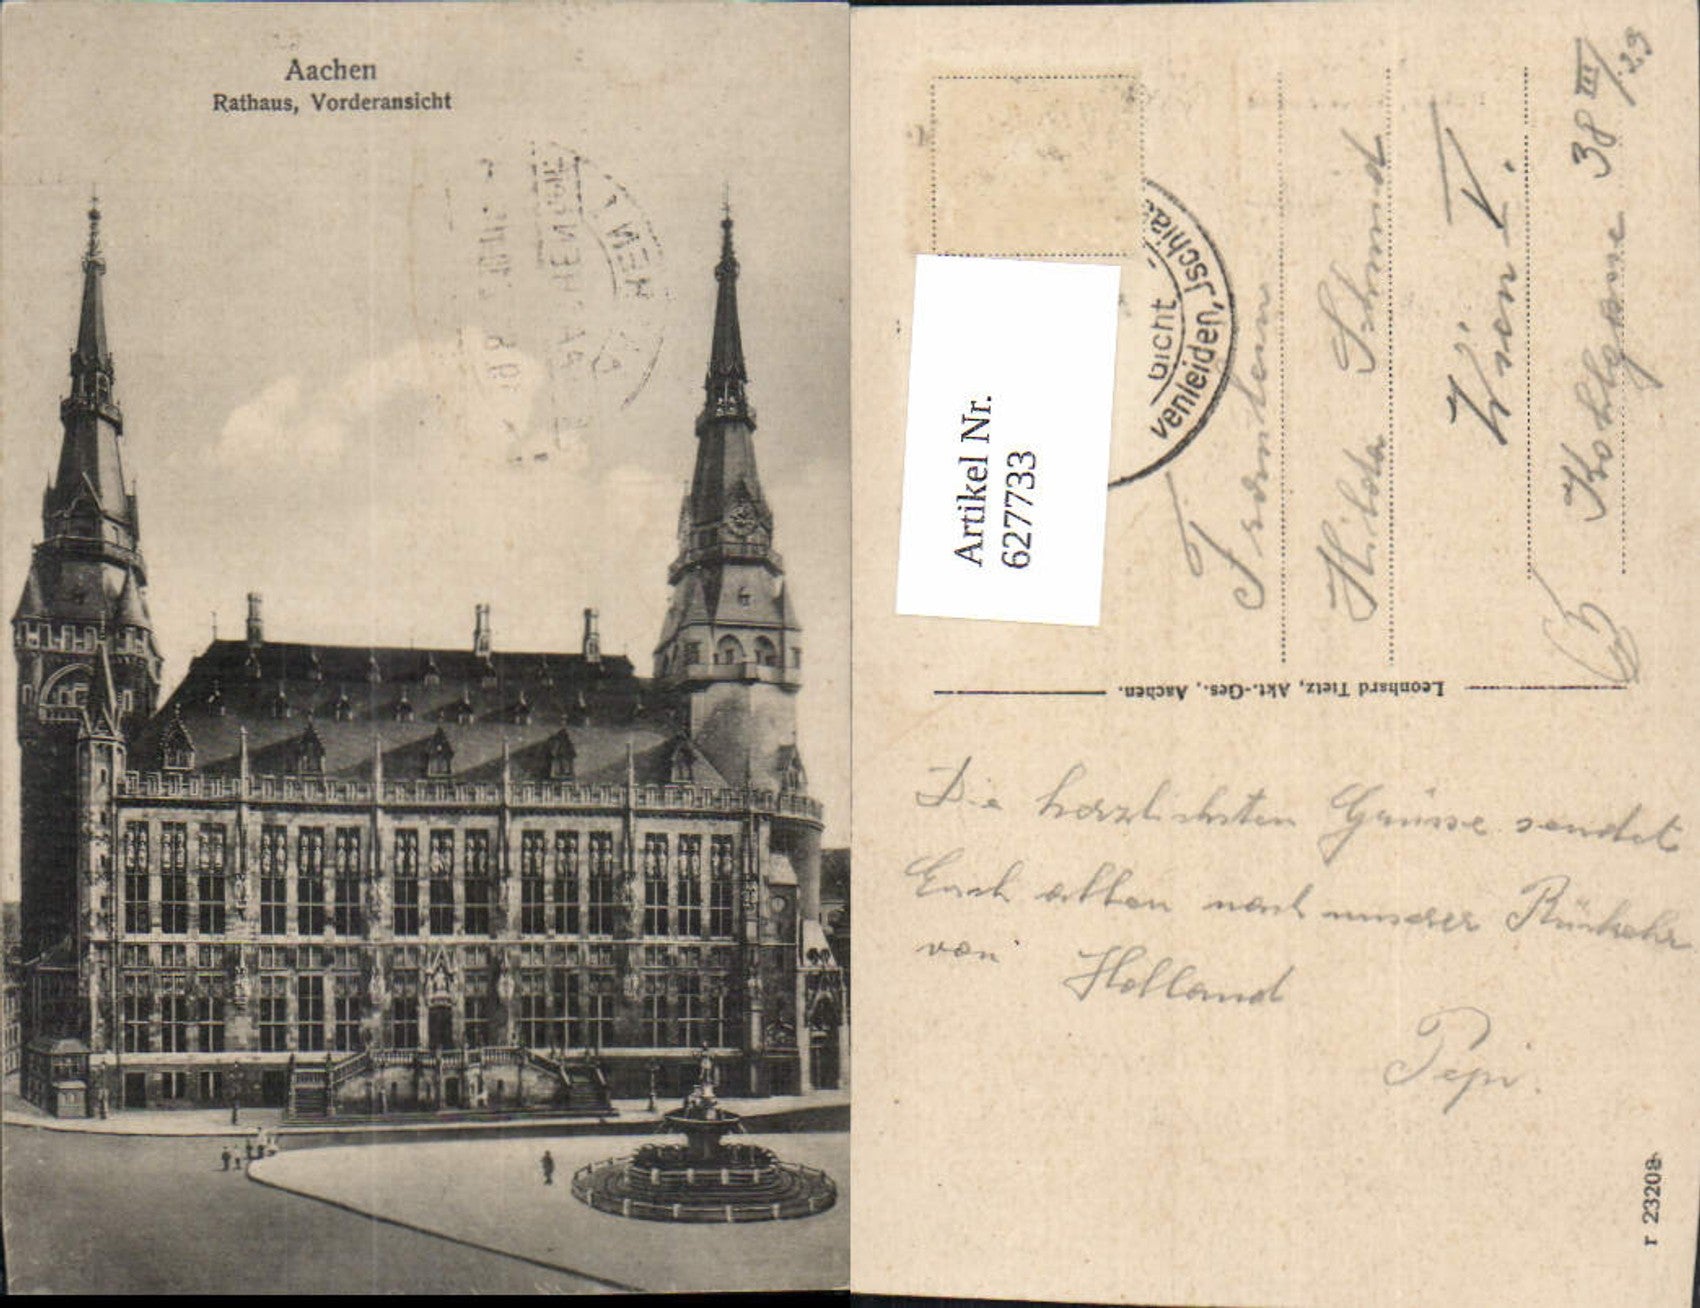 Aachen
Rathaus, Vorderansicht
Artikel Nr.
627733
Gicht
venleiden, Jschias
Fräulein
Hilda Schmid
Wien V.
Kohlgasse 38 III/23
Leonhard Tietz, Akt.-Ges., Aachen.
Die herzlichsten Grüsse sendet
Euch allen nach unserer Rückkehr
von Holland
Pepi.
r 23208